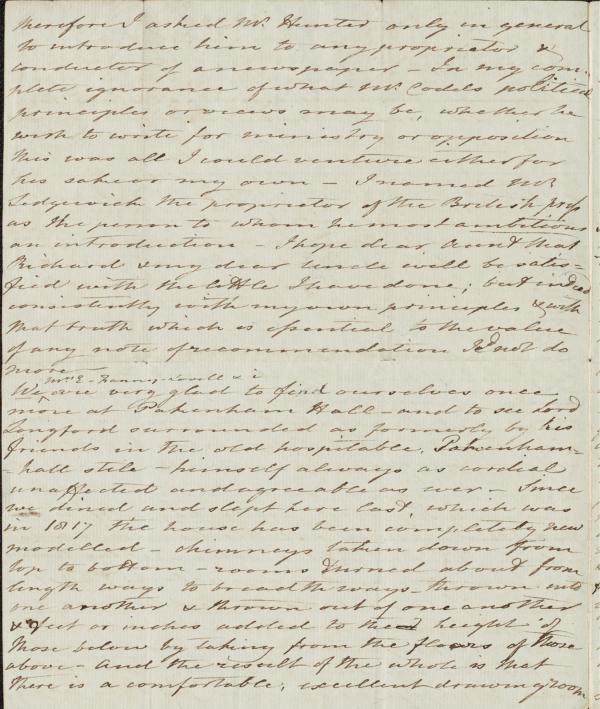 therefore I asked Mr. Hunter only in general
to introduce him to any proprietor &
conductor of a newspaper – In my com-
plete ignorance of what Mr. Codds political
principles or views may be, whether he
wish to write for ministry or opposition
this was all I could venture either for
his sake or my own – I named Mr
Sedgewick the proprietor of the British press
as the person to whom he most ambitious
an introduction – I hope dear Aunt that
Richard & my dear Uncle will be satis-
fied with the little I have done; but indeed
consistently with my own principles & with
that truth which is essential to the value
of any note of recommendation I cd not do
more
Mrs. E – Fanny – Lovell & i
We are very glad to find ourselves once
more at Pakenham Hall – and to see Lord
Longford surrounded as formerly by his
friends in the old hospitable, Pakenham-
-hall stile – himself always as cordial
unaffected and agreeable as ever – Since
we dined and slept here last, which was
in 1817 the house has been completely new
modelled – chimneys taken down from
top to bottom – rooms turned about from
length ways to breadth ways – thrown into
one another & thrown out of one another
& feet or inches added to the height of
those below by taking from the floors of those
above – And the result of the whole is that
there is a comfortable, excellent drawing room